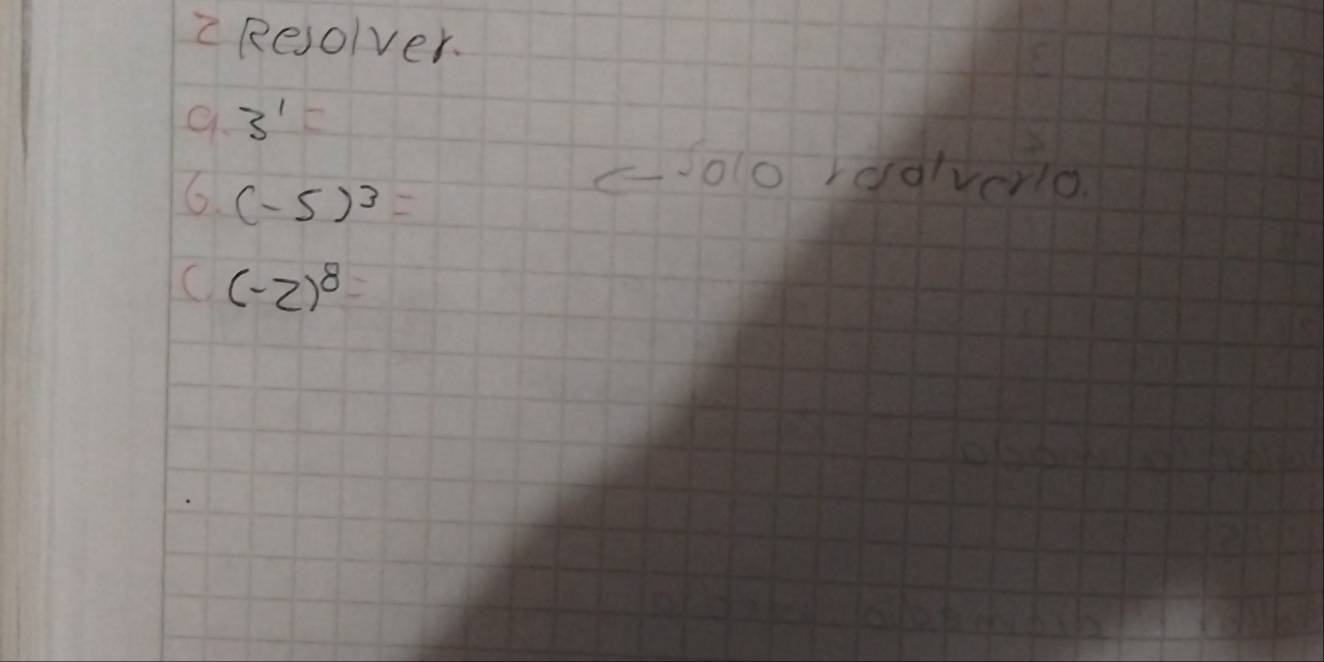 2 Resolver.
a. 3¹ =
b. (-5)³ =
← Solo resolverlo.
c. (-2)⁸ =